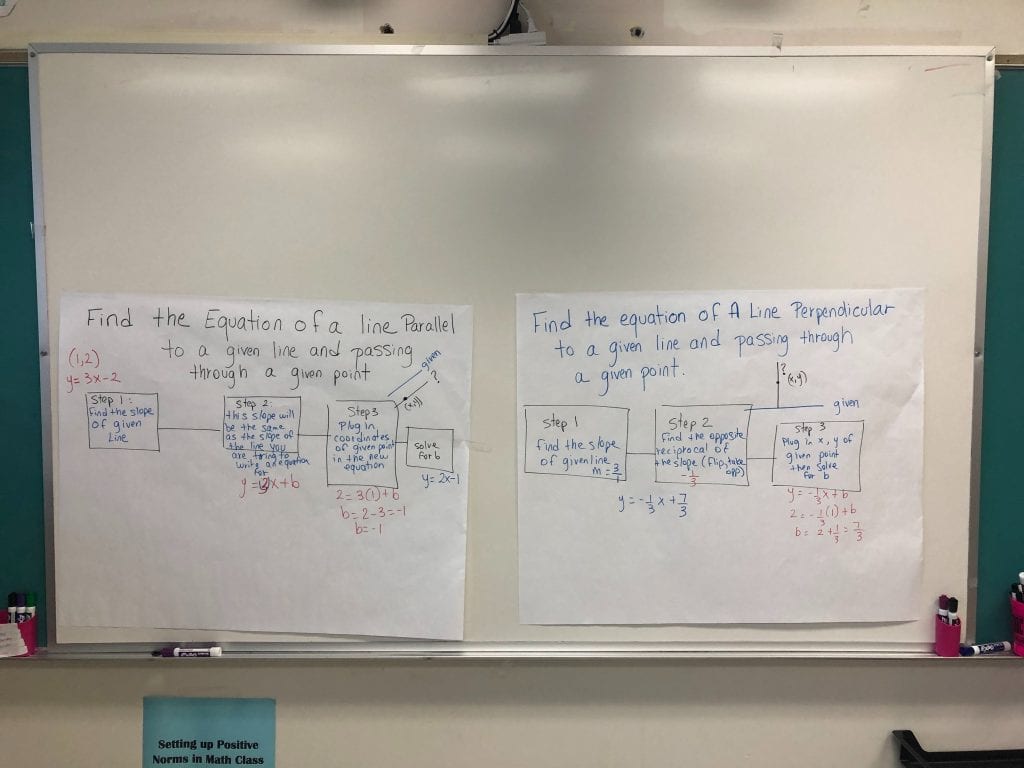 Find the Equation of a line Parallel
to a given line and passing
through a given point
(1,2)
y = 3x-2
given
?
(x,y)
Step 1:
Find the slope
of given
Line
Step 2:
this slope will
be the same
as the slope of
the line you
are trying to
write an equation
for
x+b
Step 3
Plug in
coordinates
of given point
in the new
equation
2 = 3(1)+b
b = 2-3 = -1
b = -1
solve
for b
y = 2x-1
Find the equation of A Line Perpendicular
to a given line and passing through
a given point.
?
(x,y)
given
Step 1
find the slope
of given line
m = 3/1
Step 2
Find the opposite
reciprocal of
the slope (flip, take
opp)
-1/3
y = -1/3 x + 7/3
Step 3
Plug in x, y of
given point
then solve
for b
y = -1/3 x + b
2 = -1/3 (1) + b
b = 2 + 1/3 = 7/3
Setting up Positive
Norms in Math Class